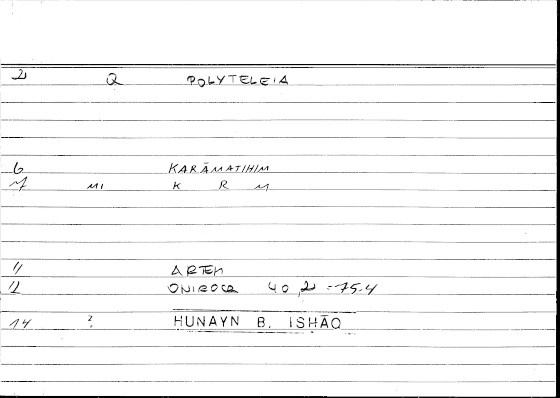 2 Q POLYTELEIA
6 KARĀMATIHIM
7 MI K R M
11 ARTEM
12 ONIROCR 40,2 = 75.4
14 ? HUNAYN B. ISHĀQ